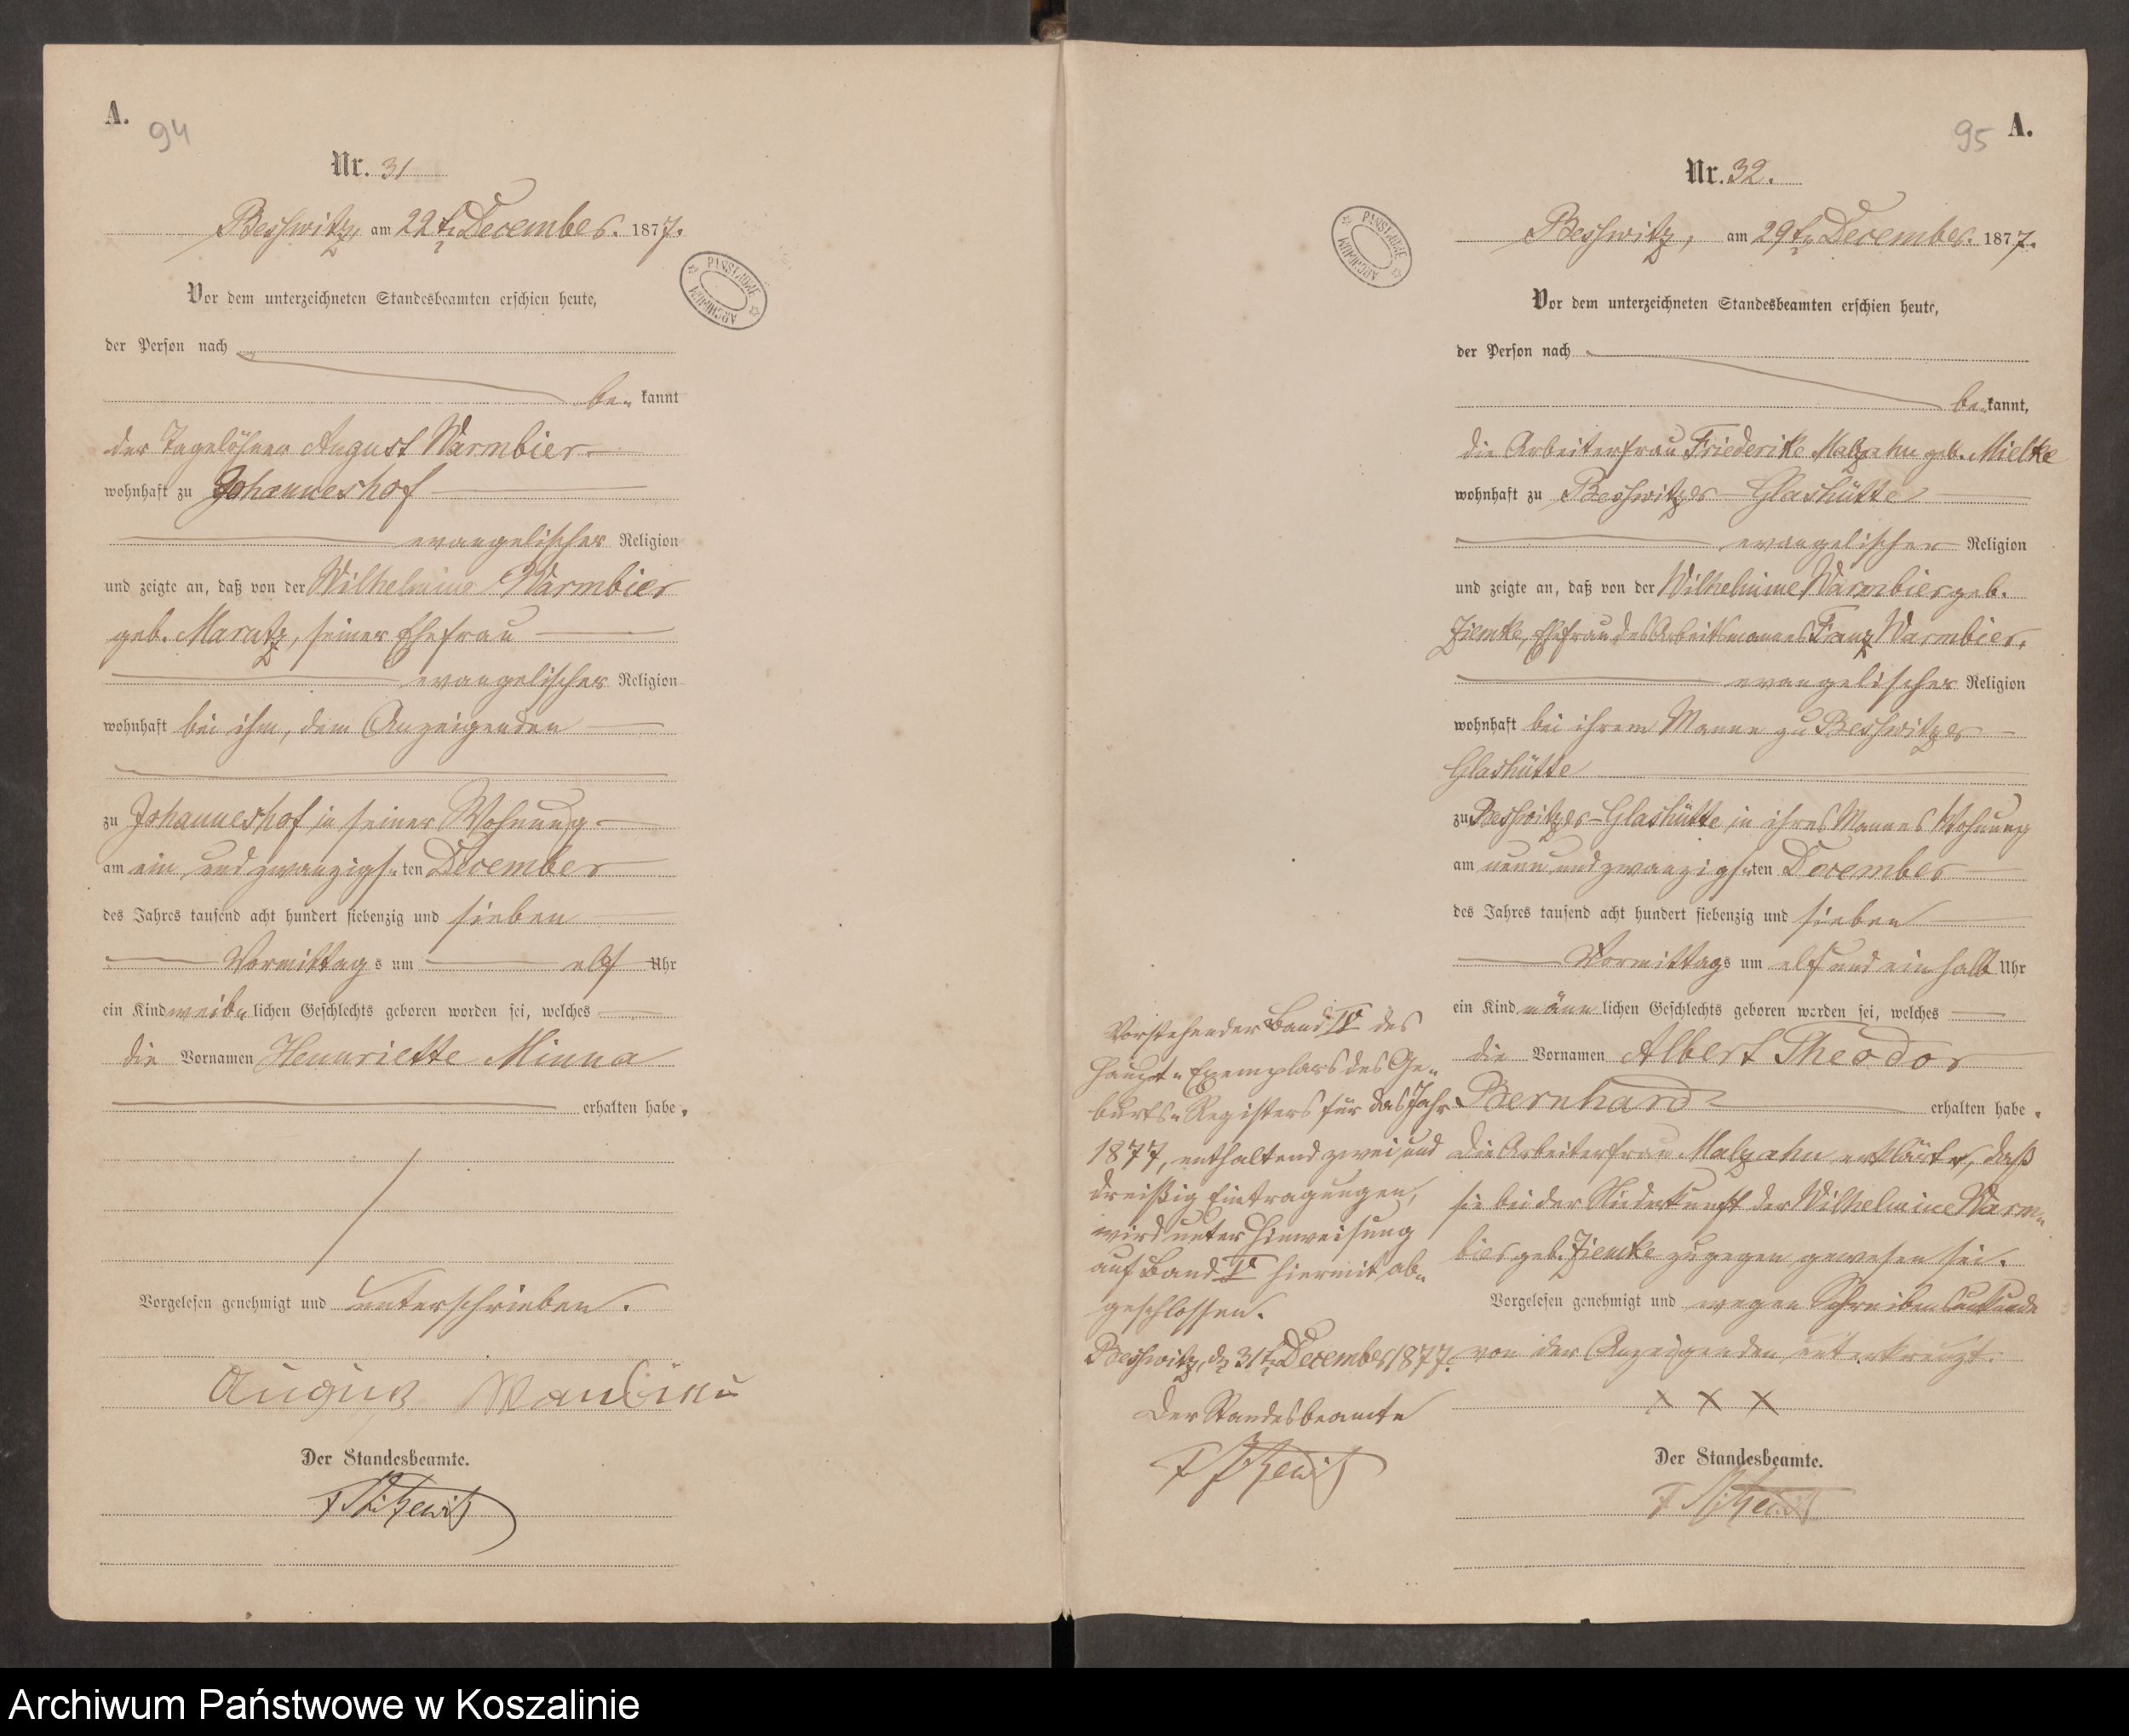 A.
94
Nr. 31
Beßwitz, am 22ten December. 1877.
Vor dem unterzeichneten Standesbeamten erschien heute,
der Person nach
be- kannt
der Tagelöhner August Warmbier
wohnhaft zu Johanneshof
evangelischer Religion
und zeigte an, daß von der Wilhelmine Warmbier
geb. Maratz, seiner Ehefrau
evangelischer Religion
wohnhaft bei ihm, dem Anzeigenden
zu Johanneshof in seiner Wohnung
am ein und zwanzigs-ten December
des Jahres tausend acht hundert siebenzig und sieben
Vormittags um elf Uhr
ein Kind weib-lichen Geschlechts geboren worden sei, welches
die Vornamen Hennriette Minna
erhalten habe.
Vorgelesen genehmigt und unterschrieben.
August
Der Standesbeamte.
ARCHIWUM PAŃSTWOWE
A.
95
Nr. 32.
Beßwitz, am 29ten December. 1877.
Vor dem unterzeichneten Standesbeamten erschien heute,
der Person nach
be-kannt,
die Arbeiterfrau Friederike Malzahn geb. Mielke
wohnhaft zu Beßwitzer-Glashütte
evangelischer Religion
und zeigte an, daß von der Wilhelmine Warmbier geb.
Ziemke, Ehefrau des Arbeitsmannes Franz Warmbier,
evangelischer Religion
wohnhaft bei ihrem Manne zu Beßwitzer
Glashütte
zu Beßwitzer-Glashütte in ihres Mannes Wohnung
am neun und zwanzigs-ten December
des Jahres tausend acht hundert siebenzig und sieben
Vormittags um elf und ein halb Uhr
ein Kind männ lichen Geschlechts geboren worden sei, welches
die Vornamen Albert Theodor
Bernhard erhalten habe.
Die Arbeiterfrau Malzahn erklärte, daß
sie bei der Niederkunft der Wilhelmine Warm-
bier geb. Ziemke zugegen gewesen sei.
Vorgelesen genehmigt und wegen Schreibensunkunde
von der Anzeigenden unterkreuzt.
x x x
Der Standesbeamte.
Vorstehender Band IV des
Haupt-Exemplars des Ge-
burts-Registers für das Jahr
1877, enthaltend zwei und
dreißig Eintragungen,
wird unter Hinweisung
auf Band V hiermit ab-
geschlossen.
Beßwitz, dn 31ten December 1877.
Der Standesbeamte
ARCHIWUM PAŃSTWOWE
Archiwum Państwowe w Koszalinie